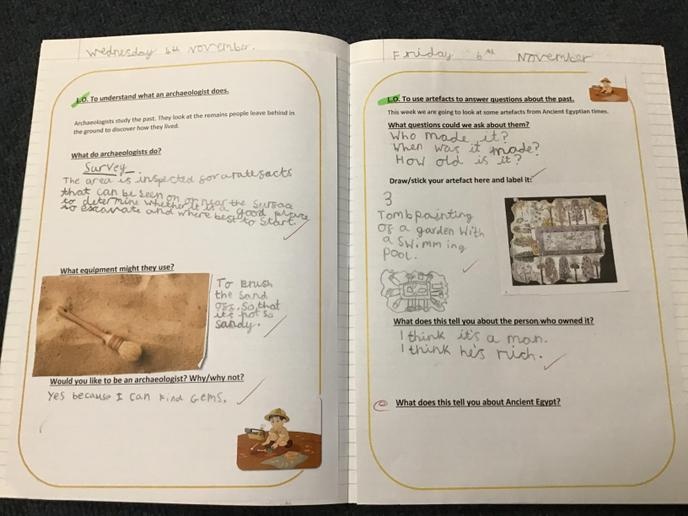 Wednesday 4th November.
L.O. To understand what an archaeologist does.
Archaeologists study the past. They look at the remains people leave behind in
the ground to discover how they lived.
What do archaeologists do?
Survey
The area is inspected for
that can be seen on or near the
to determine whether it is a good place
to excavate and where best to start.
What equipment might they use?
To brush
the sand
off. So that
it's not so
sandy.
Would you like to be an archaeologist? Why/why not?
Yes because I can find gems.
Friday 6th November
L.O. To use artefacts to answer questions about the past.
This week we are going to look at some artefacts from Ancient Egyptian times.
What questions could we ask about them?
Who made it?
When was it made?
How old is it?
Draw/stick your artefact here and label it:
3
Tomb painting
of a garden with
a swimming
pool.
What does this tell you about the person who owned it?
I think it's a man.
I think he's rich.
What does this tell you about Ancient Egypt?